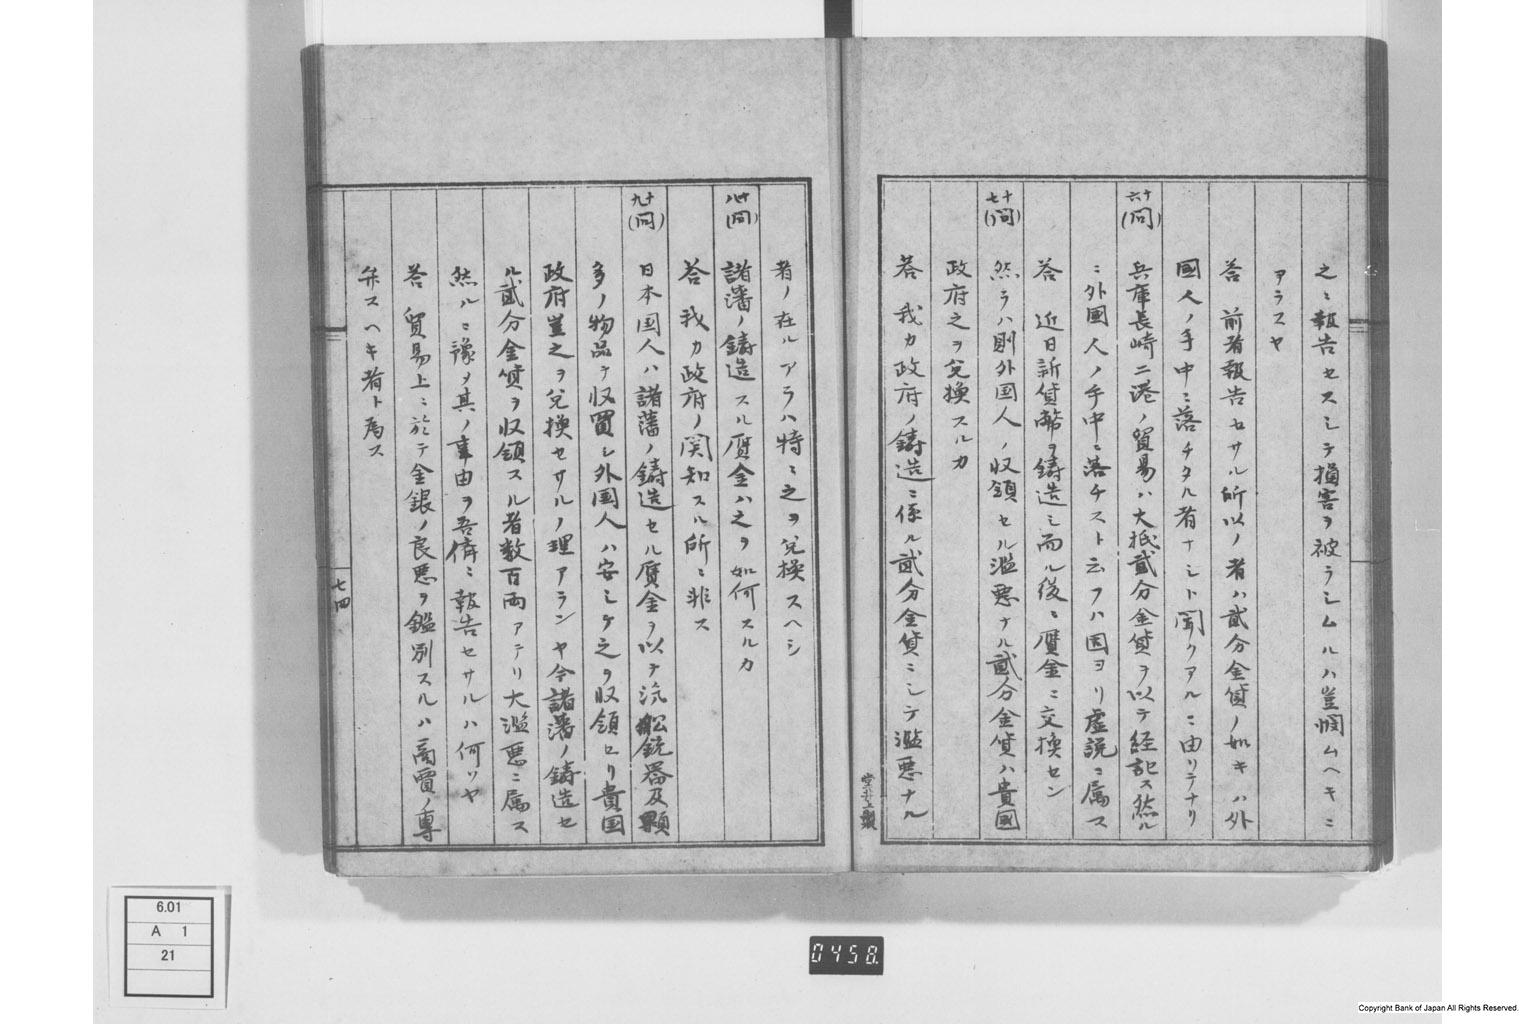 之ニ報告セスシテ損害ヲ被ラシムルハ豈憫ムヘキニ
アラスヤ
答 前者報告セサル所以ノ者ハ貳分金貨ノ如キハ外
国人ノ手中ニ落チタル者ナシト聞クアルニ由リテナリ
十六(問) 兵庫長崎二港ノ貿易ハ大抵貳分金貨ヲ以テ経記ス然ル
ニ外國人ノ手中ニ落チスト云フハ固ヨリ虚説ニ属ス
答 近日新貨幣ヲ鋳造シ而ル後ニ贋金ニ交換セン
十七(問) 然ラハ則外国人ノ収領セル濫悪ナル貳分金貨ハ貴國
政府之ヲ兌換スルカ
答 我カ政府ノ鋳造ニ係ル貳分金貨ニシテ濫悪ナル
者ノ在ルアラハ特ニ之ヲ兌換スヘシ
十八(問) 諸藩ノ鋳造スル贋金ハ之ヲ如何スルカ
答 我カ政府ノ関知スル所ニ非ス
十九(問) 日本国人ハ諸藩ノ鋳造セル贋金ヲ以テ汽船銃器及顆
多ノ物品ヲ収買シ外国人ハ安シテ之ヲ収領セリ貴国
政府豈之ヲ兌換セサルノ理アランヤ今諸藩ノ鋳造セ
ル貳分金貨ヲ収領スル者数百両アテリ大濫悪ニ属ス
然ルニ豫メ其ノ事由ヲ吾儕ニ報告セサルハ何ソヤ
答 貿易上ニ於テ金銀ノ良悪ヲ鑑別スルハ商賈ノ専
弁スヘキ者ト為ス
七四
6.01
A 1
21
0458.
Copyright Bank of Japan All Rights Reserved.